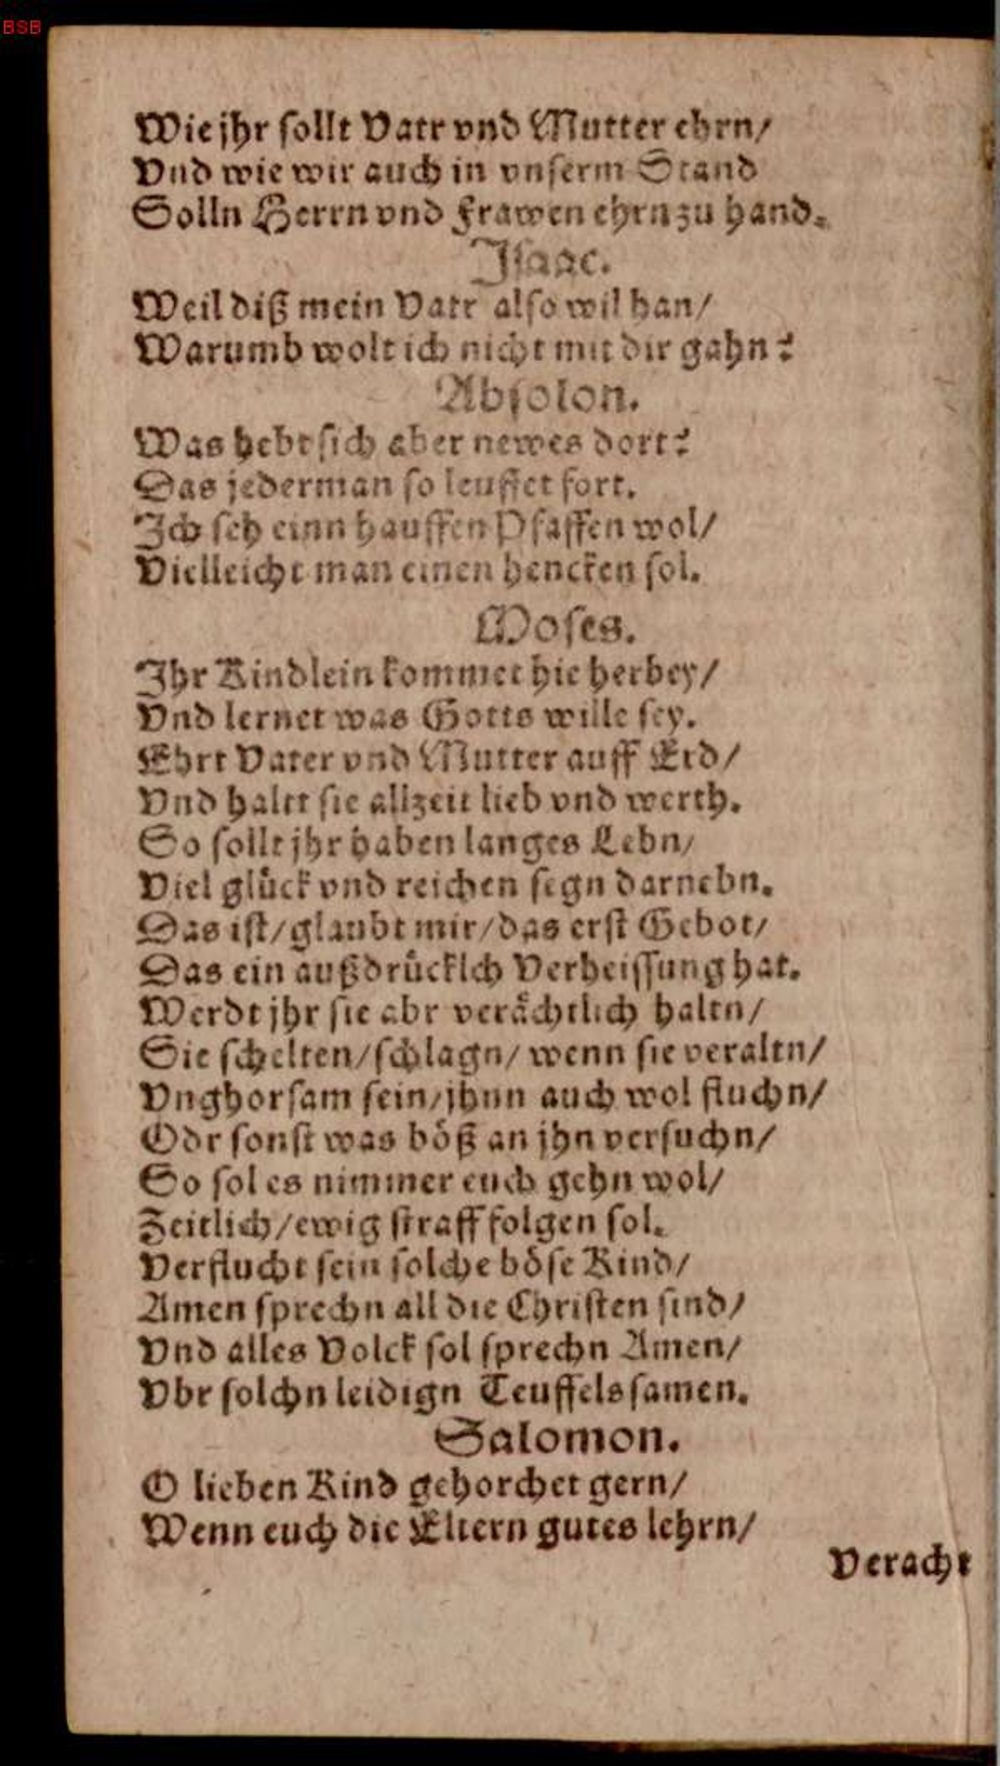 BSB
Wie jhr sollt Vatr vnd Mutter ehrn/
Vnd wie wir auch in vnserm Stand
Solln Herrn vnd Frawen ehrn zu hand.
Isaac.
Weil diß mein Vatr also wil han/
Warumb wolt ich nicht mit dir gahn?
Absolon.
Was hebt sich aber newes dort?
Das jederman so leuffet fort.
Ich seh einn hauffen Pfaffen wol/
Vielleicht man einen hencken sol.
Moses.
Ihr Kindlein kommet hie herbey/
Vnd lernet was Gotts wille sey.
Ehrt Vater vnd Mutter auff Erd/
Vnd haltt sie allzeit lieb vnd werth.
So sollt jhr haben langes Lebn/
Viel glück vnd reichen segn darnebn.
Das ist/glaubt mir/das erst Gebot/
Das ein außdrücklch Verheissung hat.
Werdt jhr sie abr verächtlich haltn/
Sie schelten/schlagn/wenn sie veraltn/
Vnghorsam sein/jhnn auch wol fluchn/
Odr sonst was böß an jhn versuchn/
So sol es nimmer euch gehn wol/
Zeitlich/ewig straff folgen sol.
Verflucht sein solche böse Kind/
Amen sprechn all die Christen sind/
Vnd alles Volck sol sprechn Amen/
Vbr solchn leidign Teuffels samen.
Salomon.
O lieben Kind gehorchet gern/
Wenn euch die Eltern gutes lehrn/
Veracht